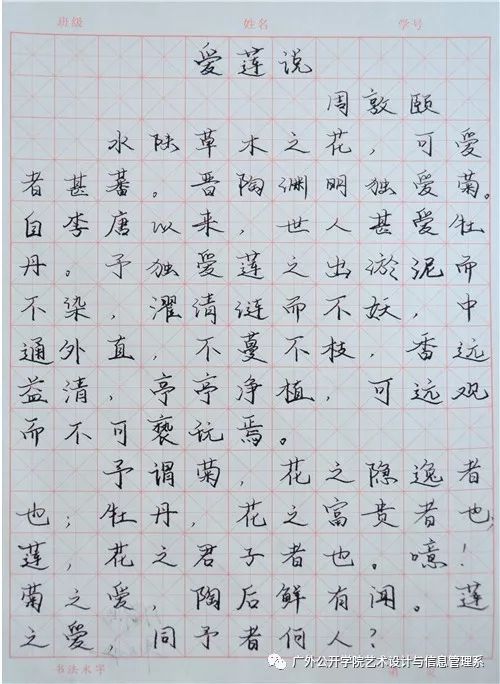 班级 姓名 学号
爱莲说
周敦颐
水陆草木之花，可爱
者甚蕃。晋陶渊明独爱菊。
自李唐以来，世人甚爱牡
丹。予独爱莲之出淤泥而
不染，濯清涟而不妖，中
通外直，不蔓不枝，香远
益清，亭亭净植，可远观
而不可亵玩焉。
予谓菊，花之隐逸者
也；牡丹，花之富贵者也；
莲，花之君子者也。噫！
菊之爱，陶后鲜有闻。莲
之爱，同予者何人？
书法水字
广外公开学院艺术设计与信息管理系